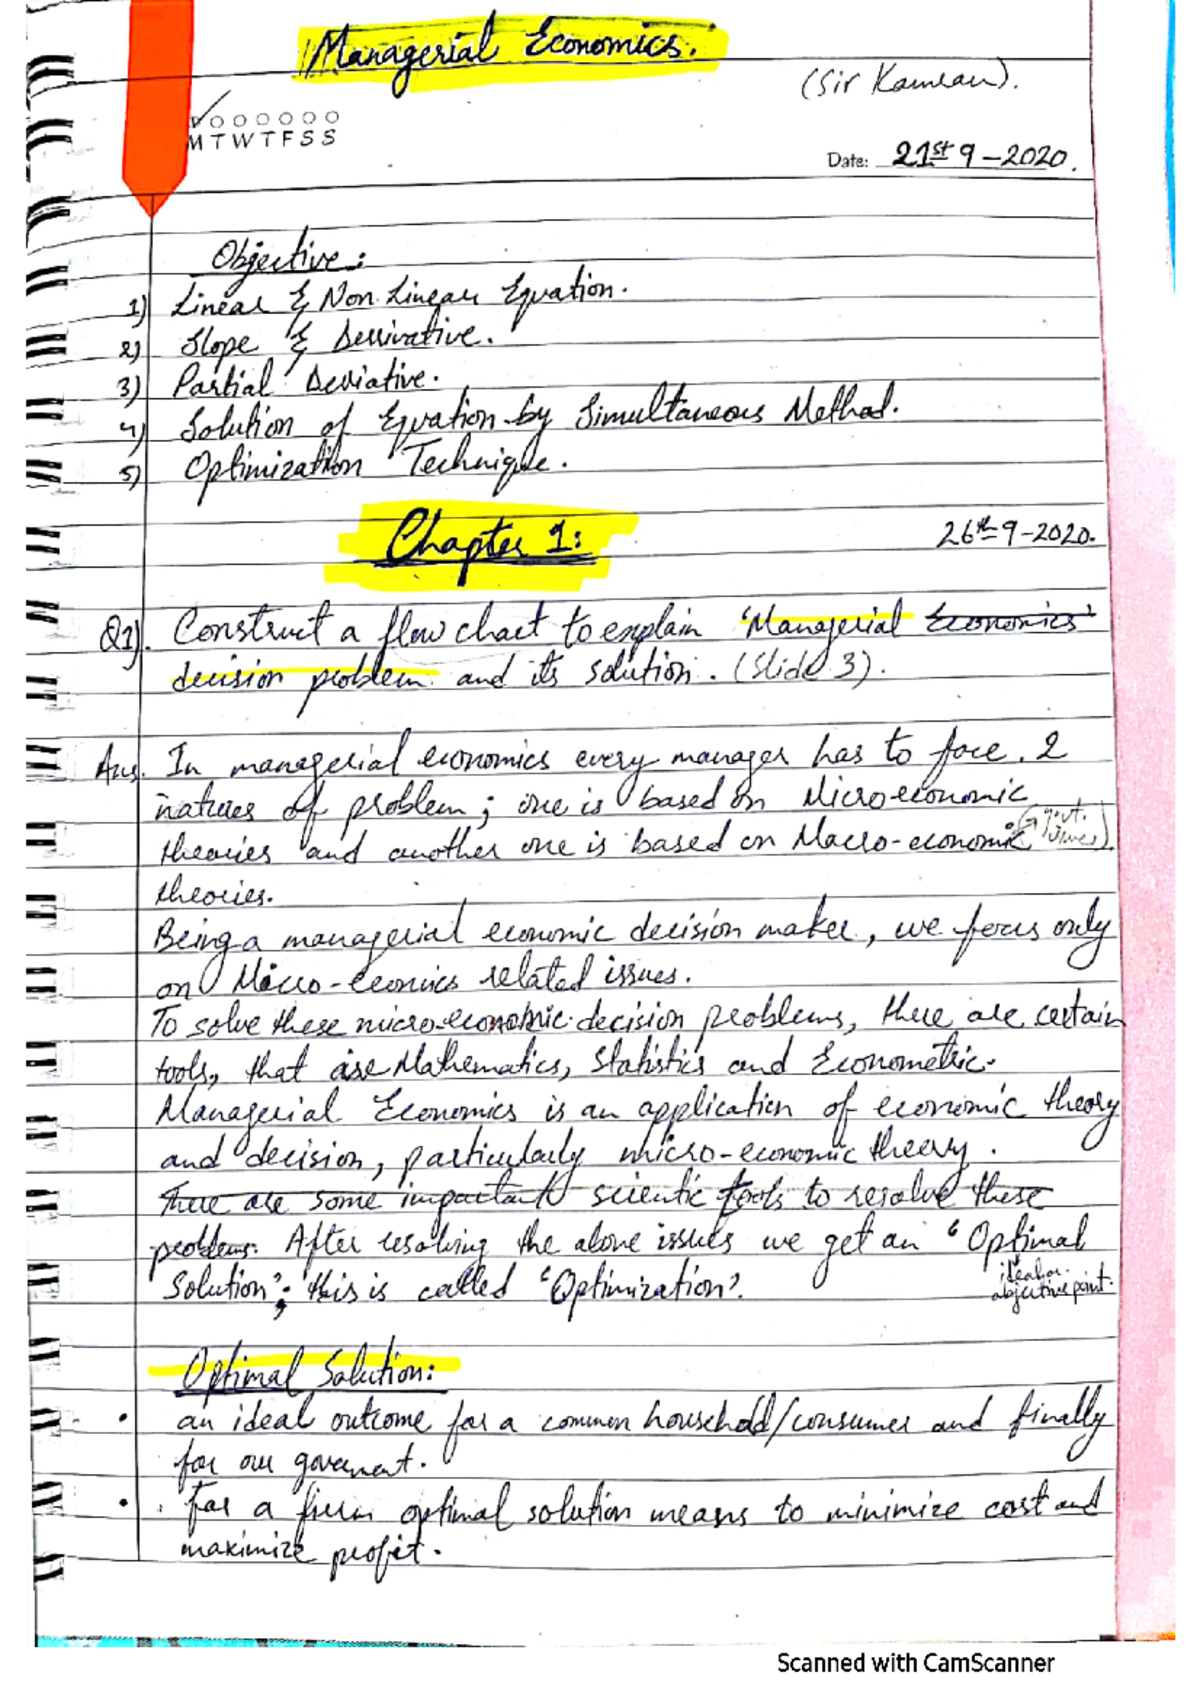 Managerial Economics.
(Sir Kamran).
M T W T F S S
Date: 21st 9-2020.
Objective:
1) Linear & Non Linear Equation.
2) Slope & Derrivative.
3) Partial Deviative.
4) Solution of Equation by Simultaneous Method.
5) Optimization Technique.
Chapter 1:
26th-9-2020.
Q1). Construct a flow chart to explain 'Managerial Economics'
decision problem and its solution. (Slide 3).
Ans. In managerial economics every manager has to face 2
natures of problem; one is based on Microeconomic
theories and another one is based on Macro-economic
govt.
theories.
Being a managerial economic decision maker, we focus only
on Micro-economics related issues.
To solve these micro-economic decision problems, there are certain
tools, that are Mathematics, Statistics and Econometric.
Managerial Economics is an application of economic theory
and decision, particularly micro-economic theory.
There are some important scientic tools to resolve these
problems. After resolving the above issues we get an 'Optimal
Solution'; this is called 'Optimization'.
ideal or
objective point.
Optimal Solution:
• an ideal outcome for a common household/consumer and finally
for our goverment.
• For a firm optimal solution means to minimize cost and
maximize profit.
Scanned with CamScanner